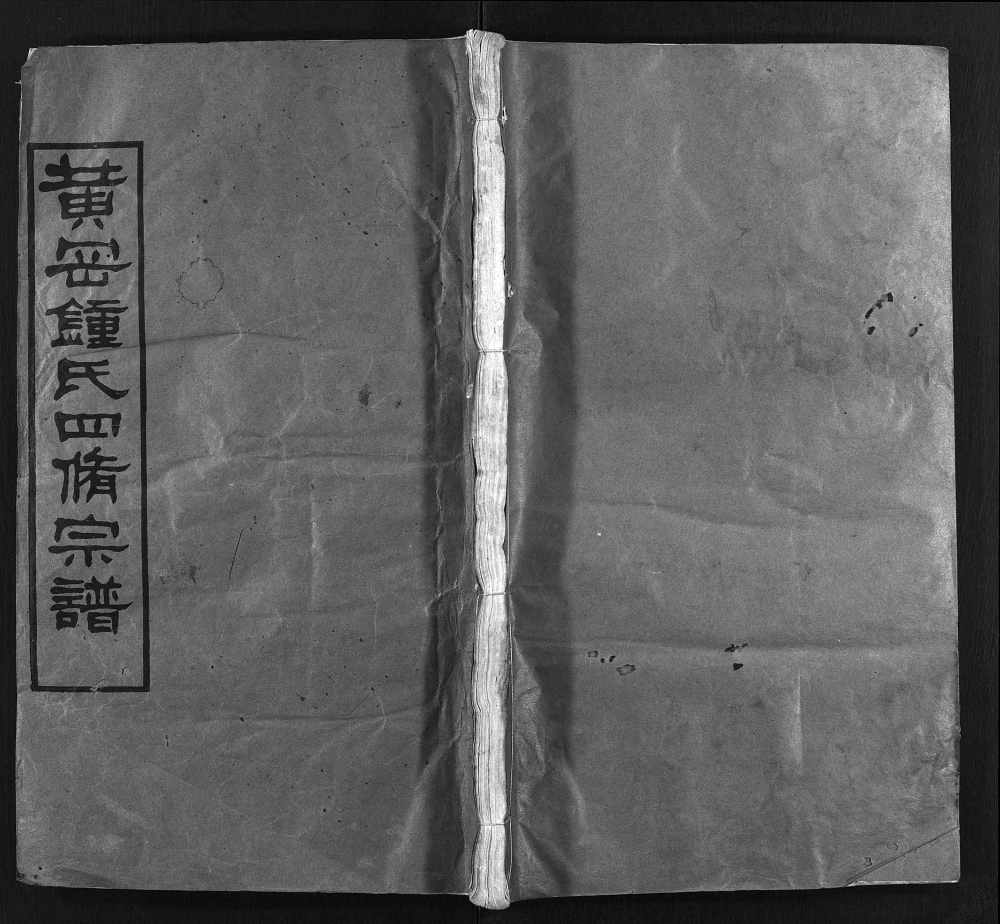 黄岡鍾氏四脩宗譜